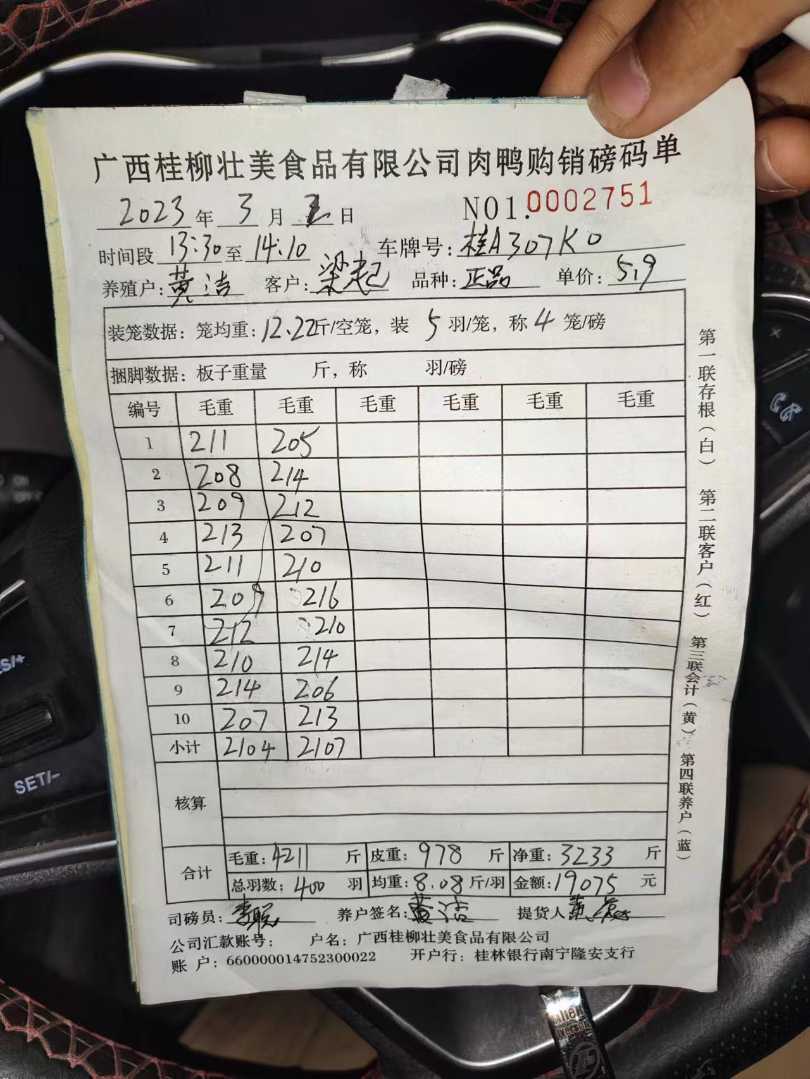 广西桂柳壮美食品有限公司肉鸭购销磅码单
2023 年 3 月 日 NO1.0002751
时间段 13:30 至 14:10 车牌号: 桂A307K0
养殖户: 黄洁 客户: 梁起 品种: 正品 单价: 5.9
装笼数据: 笼均重: 12.22 斤/空笼, 装 5 羽/笼, 称 4 笼/磅
捆脚数据: 板子重量 斤, 称 羽/磅
编号 毛重 毛重 毛重 毛重 毛重 毛重
1 211 205
2 208 214
3 209 212
4 213 207
5 211 210
6 209 216
7 212 210
8 210 214
9 214 206
10 207 213
小计 2104 2107
核算
合计 毛重: 4211 斤 皮重: 978 斤 净重: 3233 斤
总羽数: 400 羽 均重: 8.08 斤/羽 金额: 19075 元
司磅员: 养户签名: 黄洁 提货人
公司汇款账号: 户名: 广西桂柳壮美食品有限公司
账 户: 660000014752300022 开户行: 桂林银行南宁隆安支行
第一联存根(白) 第二联客户(红) 第三联会计(黄) 第四联养户(蓝)
SET/-